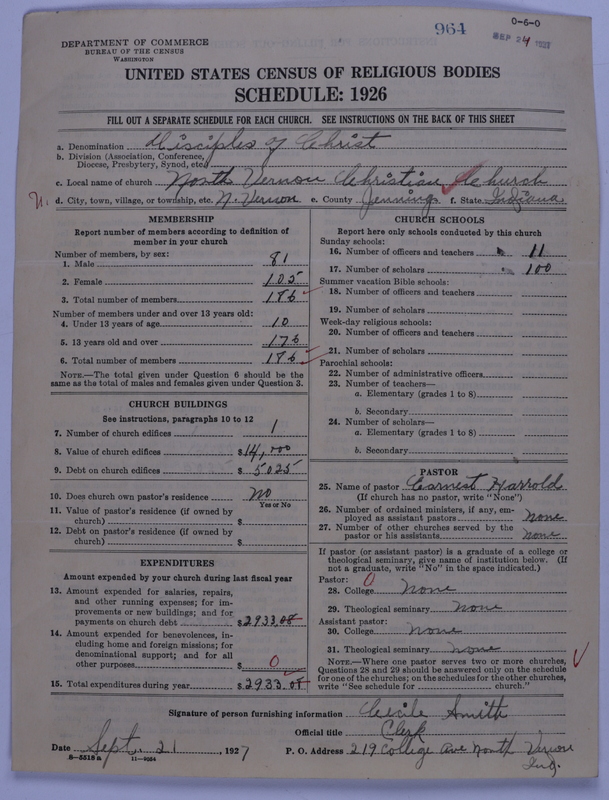 964
0-6-0
SEP 24 1927
DEPARTMENT OF COMMERCE
BUREAU OF THE CENSUS
WASHINGTON
UNITED STATES CENSUS OF RELIGIOUS BODIES
SCHEDULE: 1926
FILL OUT A SEPARATE SCHEDULE FOR EACH CHURCH. SEE INSTRUCTIONS ON THE BACK OF THIS SHEET
a. Denomination Disciples of Christ
b. Division (Association, Conference,
Diocese, Presbytery, Synod, etc.)
c. Local name of church North Vernon Christian Church
d. City, town, village, or township, etc. N. Vernon e. County Jennings f. State Indiana
MEMBERSHIP
Report number of members according to definition of
member in your church
Number of members, by sex:
1. Male 81
2. Female 105
3. Total number of members 186
Number of members under and over 13 years old:
4. Under 13 years of age 10
5. 13 years old and over 176
6. Total number of members 186
NOTE.—The total given under Question 6 should be
the same as the total of males and females given under Question 3.
CHURCH BUILDINGS
See instructions, paragraphs 10 to 12
7. Number of church edifices 1
8. Value of church edifices $14,000
9. Debt on church edifices $5025
10. Does church own pastor's residence No
Yes or No
11. Value of pastor's residence (if owned by
church) $
12. Debt on pastor's residence (if owned by
church) $
EXPENDITURES
Amount expended by your church during last fiscal year
13. Amount expended for salaries, repairs,
and other running expenses; for im-
provements or new buildings; and for
payments on church debt $2933.08
14. Amount expended for benevolences, in-
cluding home and foreign missions; for
denominational support; and for all
other purposes $0
15. Total expenditures during year $2933.08
CHURCH SCHOOLS
Report here only schools conducted by this church
Sunday schools:
16. Number of officers and teachers 11
17. Number of scholars 100
Summer vacation Bible schools:
18. Number of officers and teachers
19. Number of scholars
Week-day religious schools:
20. Number of officers and teachers
21. Number of scholars
Parochial schools:
22. Number of administrative officers
23. Number of teachers—
a. Elementary (grades 1 to 8)
b. Secondary
24. Number of scholars—
a. Elementary (grades 1 to 8)
b. Secondary
PASTOR
25. Name of pastor Earnest Harrold
(If church has no pastor, write "None")
26. Number of ordained ministers, if any, em-
ployed as assistant pastors none
27. Number of other churches served by the
pastor or his assistants none
If pastor (or assistant pastor) is a graduate of a college or
theological seminary, give name of institution below. (If
not a graduate, write "No" in the space indicated.)
Pastor: 0
28. College none
29. Theological seminary none
Assistant pastor:
30. College none
31. Theological seminary none
NOTE.—Where one pastor serves two or more churches,
Questions 28 and 29 should be answered only on the schedule
for one of the churches; on the schedules for the other churches,
write "See schedule for church."
Signature of person furnishing information Cecile Smith
Official title Clerk
Date Sept. 21, 1927 P. O. Address 219 College Ave North Vernon
Ind.
8—5518a 11—9054